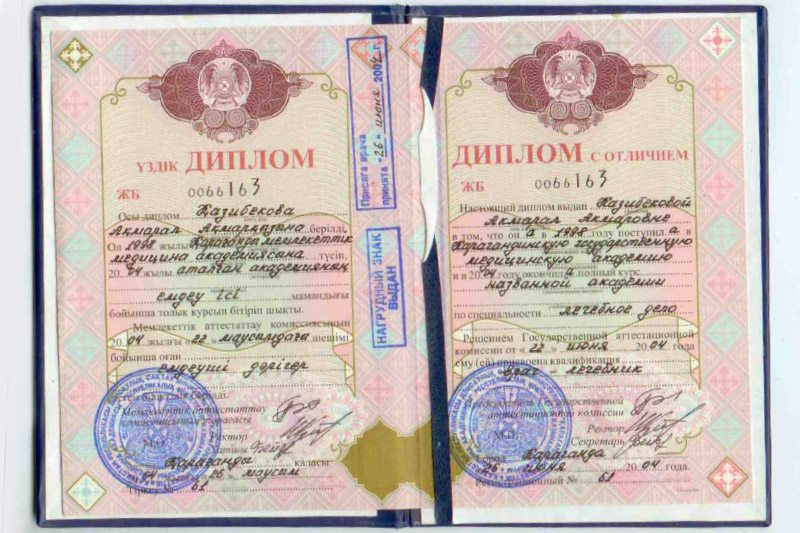 ҮЗДІК ДИПЛОМ
ЖБ 0066163
Осы диплом Казибекова
берілді.
Ол 1998 жылы Караганда мемлекеттік
медицина академиясына түсіп,
20 04 жылы аталган академияның
емдеу ісі мамандығы
бойынша толық курсын бітіріп шықты.
Мемлекеттік аттестаттау комиссиясының
20 04 жылғы «22» маусымдағы шешімі
бойынша оған
емдеуші дәрігер
Мемлекеттік аттестаттау
комиссиясының төрағасы
Ректор
М.О.
Караганды қаласы
26 маусым
№ 62
Присяга врача
принята «26» июня 2004 г.
НАГРУДНЫЙ ЗНАК
ВЫДАН
ДИПЛОМ С ОТЛИЧИЕМ
ЖБ 0066163
Настоящий диплом выдан Казибековой
Акмарал
в том, что он а в 1998 году поступил а в
Карагандинскую государственную
медицинскую академию
и в 20 04 году окончил а полный курс
названной академии
по специальности лечебное дело
Решением Государственной аттестационной
комиссии от «22» июня 20 04 года
ему (ей) присвоена квалификация
врач лечебник
Председатель Государственной
аттестационной комиссии
Ректор
Секретарь
М.П.
Город Караганда
26 июня 20 04 года.
Регистрационный № 62